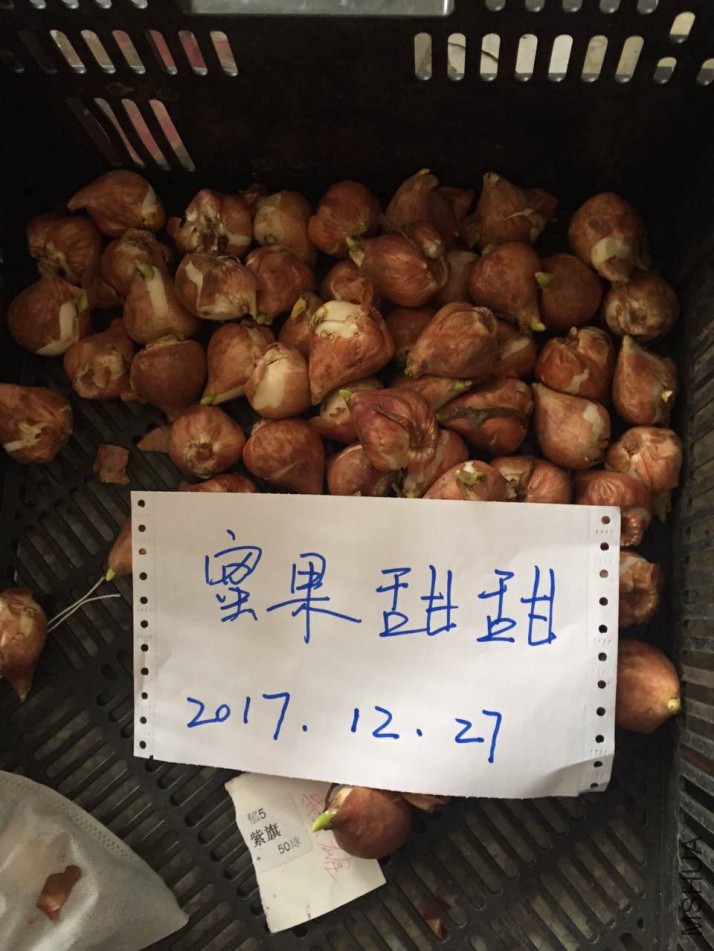 蜜果甜甜
2017.12.27
郁5
紫旗
50球
MSHUA